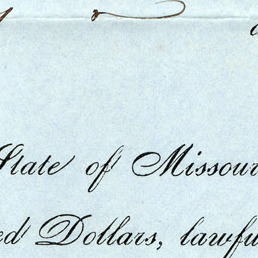 State of Missour
ed Dollars, lawfu